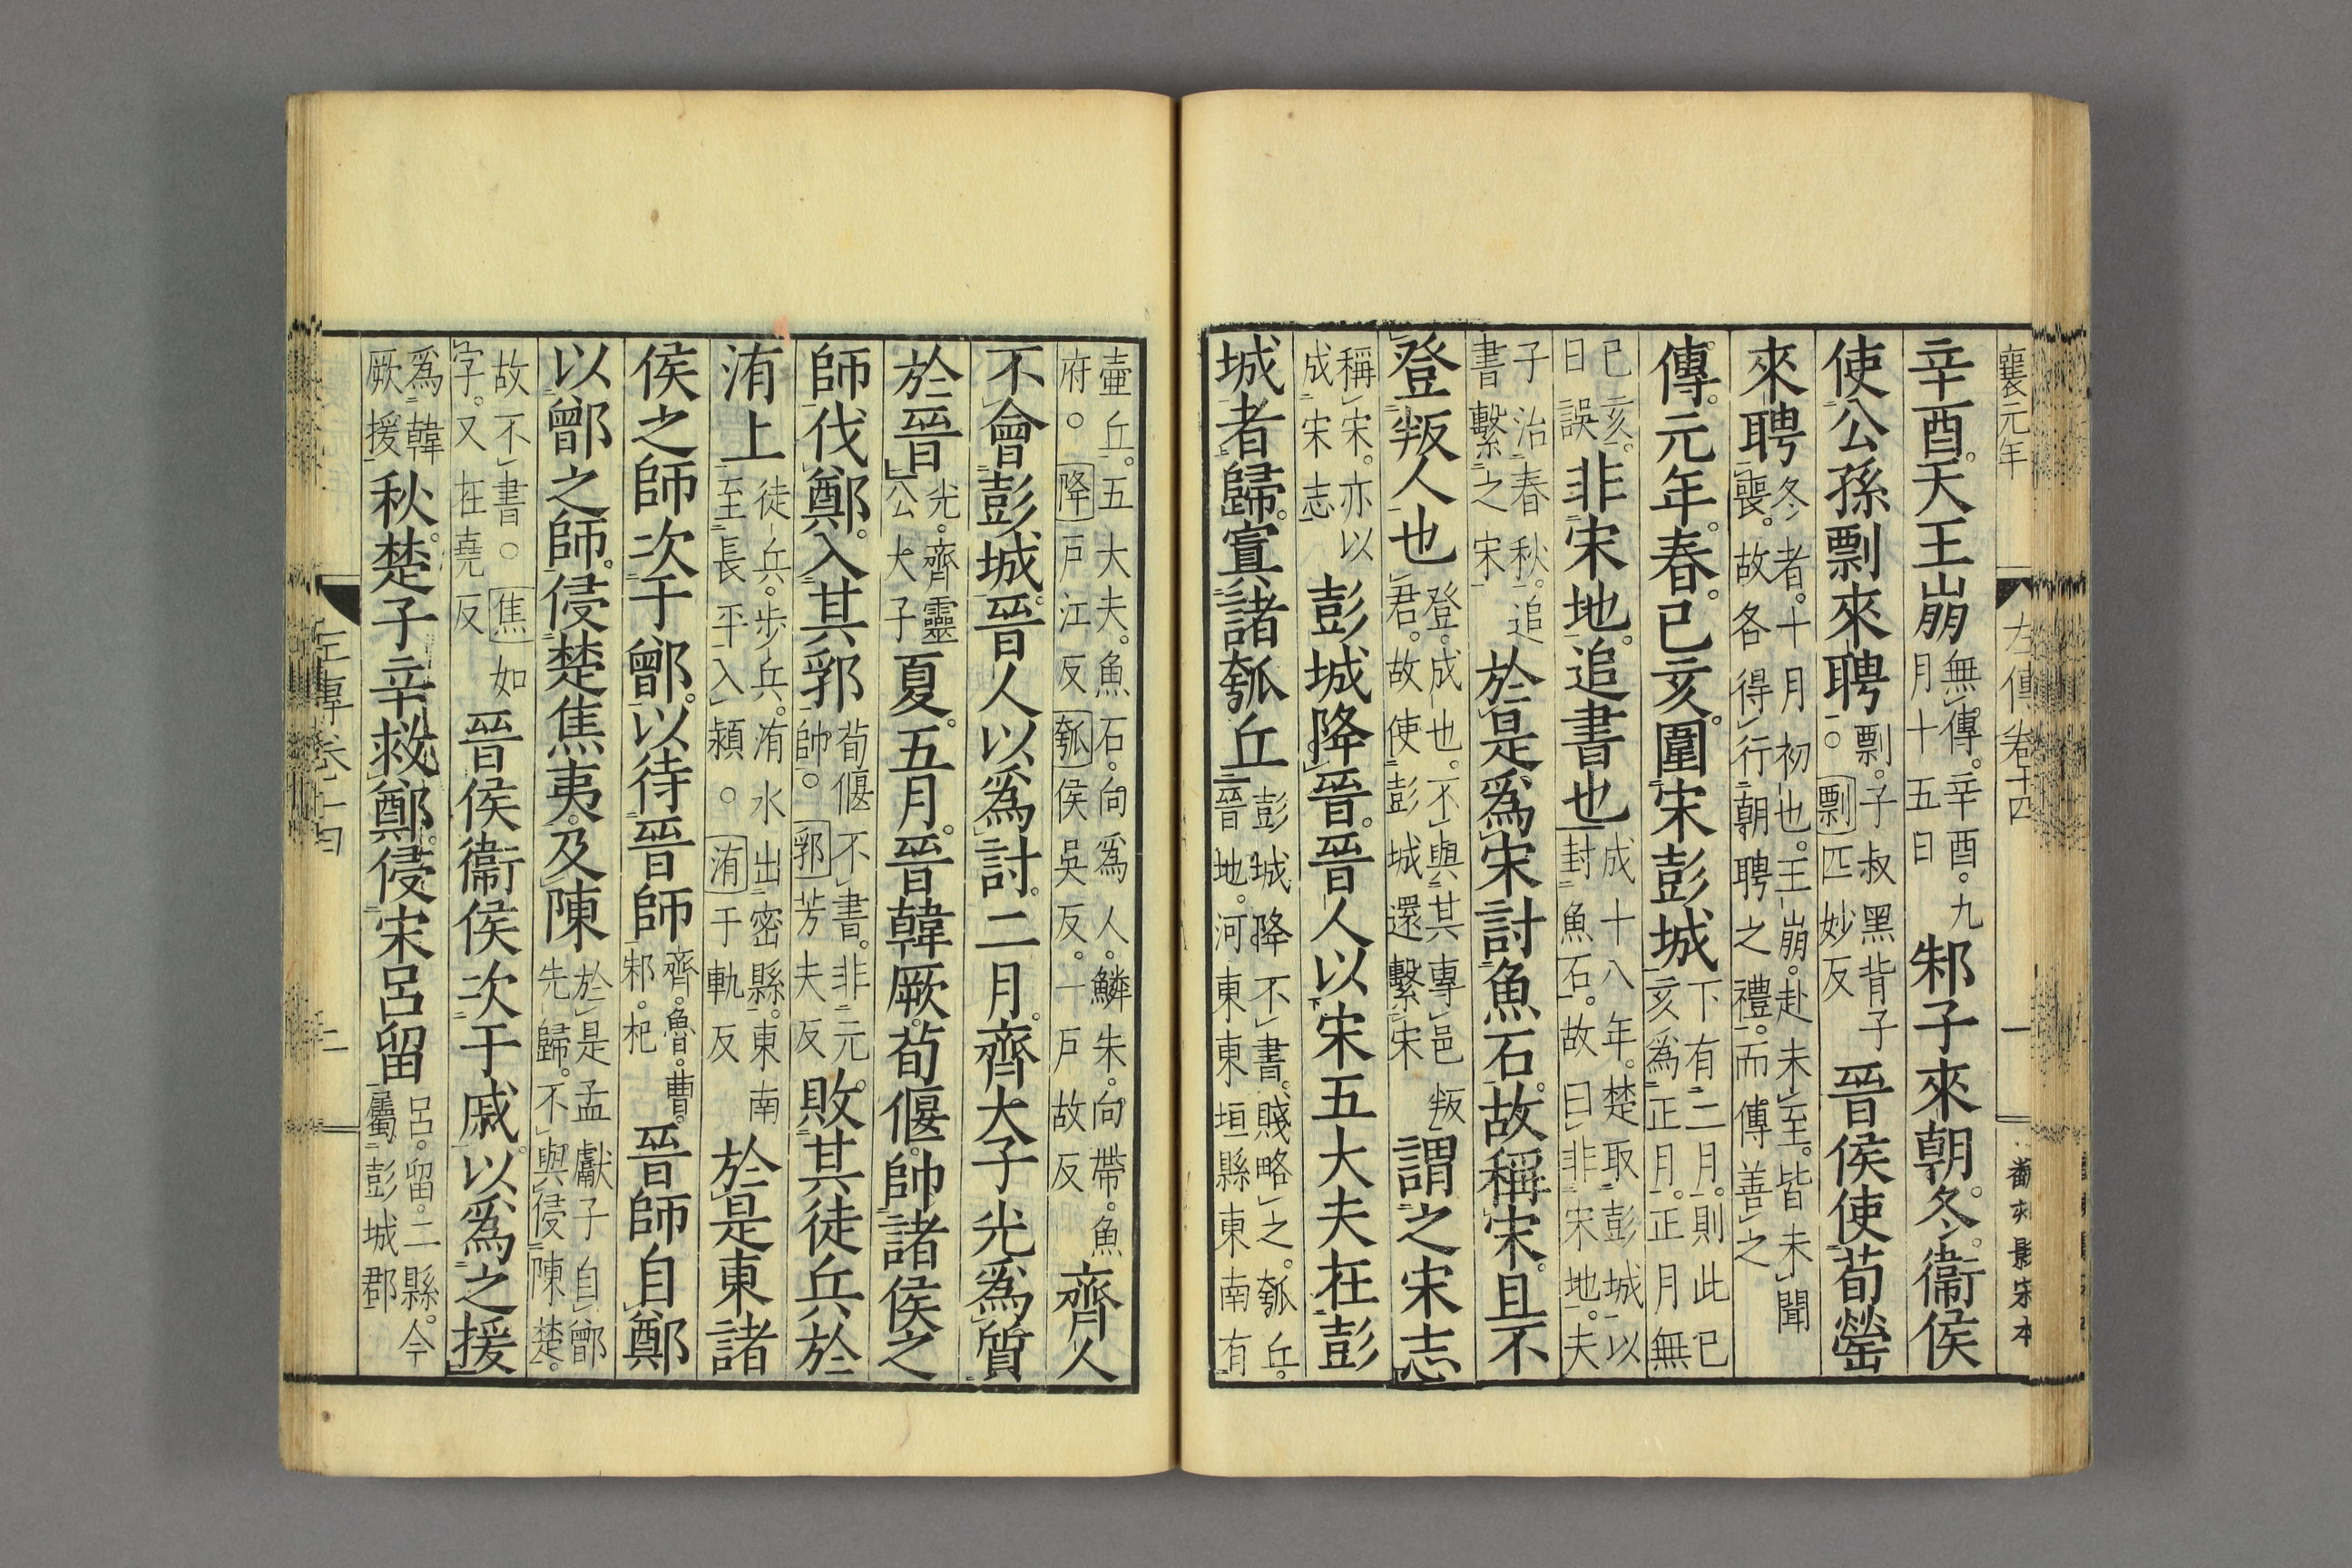 襄元年 左傳卷十四 一 影宋本
辛酉。天王崩無傳。辛酉。九月十五日。邾子來朝。冬。衞侯
使公孫剽來聘剽。子叔黑背子○剽匹妙反晉侯使荀罃
來聘冬者。十月初也。王崩。赴未至。皆未聞喪。故各得行朝聘之禮。而傳善之
傳。元年。春。己亥。圍宋彭城下有二月。則此己亥爲正月。正月無
己亥。日誤非宋地。追書也成十八年。楚取彭城以封魚石。故曰非宋地。夫
子治春秋。追書繫之宋於是爲宋討魚石。故稱宋。且不
登叛人也登。成也。不與其專邑叛君。故使彭城還繫宋謂之宋志
稱宋。亦以成宋志彭城降晉。晉人以宋五大夫在彭
城者歸。寘諸瓠丘彭城降不書。賤略之。瓠丘。晉地。河東東垣縣東南有
壷丘。五大夫。魚石。向爲人。鱗朱。向帶。魚府。○降戸江反瓠侯吳反。一戸故反齊人
不會彭城。晉人以爲討。二月。齊大子光爲質
於晉光。齊靈公大子夏。五月。晉韓厥。荀偃。帥諸侯之
師伐鄭。入其郛荀偃不書。非元帥。○郛芳夫反敗其徒兵於
洧上徒兵。歩兵。洧水出密縣。東南至長平入潁○洧于軌反於是東諸
侯之師次于鄫。以待晉師齊。魯。曹。邾。杞晉師自鄭
以鄫之師。侵楚焦夷。及陳於是孟獻子自鄫先歸。不與侵陳楚。
故不書○焦如字。又在堯反晉侯衞侯次于戚。以爲之援
爲韓厥援秋。楚子辛救鄭。侵宋呂留呂。留。二縣。今屬彭城郡
左傳卷十四 二